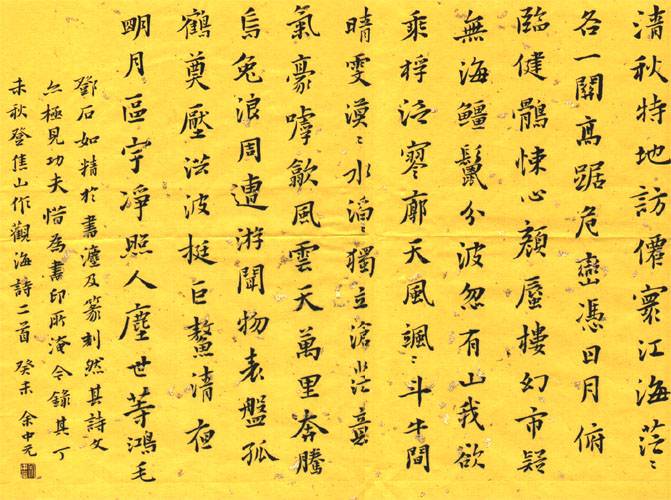 清秋特地訪僊寰江海茫〻
各一關高踞危巒憑日月俯
臨健鶻悚心顏蜃樓幻市疑
無海鱷鬣分波忽有山我欲
乘桴泛寥廓天風颯〻斗牛間
晴雯漠〻水滔〻獨立滄茫意
氣豪嘑歙風雲天萬里奔騰
烏兔浪周遭游聞物表盤孤
鶴奠壓洪波挺巨鰲清夜
朙月區宇淨照人塵世等鴻毛
鄧石如精於書灋及篆刻然其詩文
亦極見功夫惜為書印所淹今錄其丁
未秋登焦山作觀海詩二首 癸未 余中元